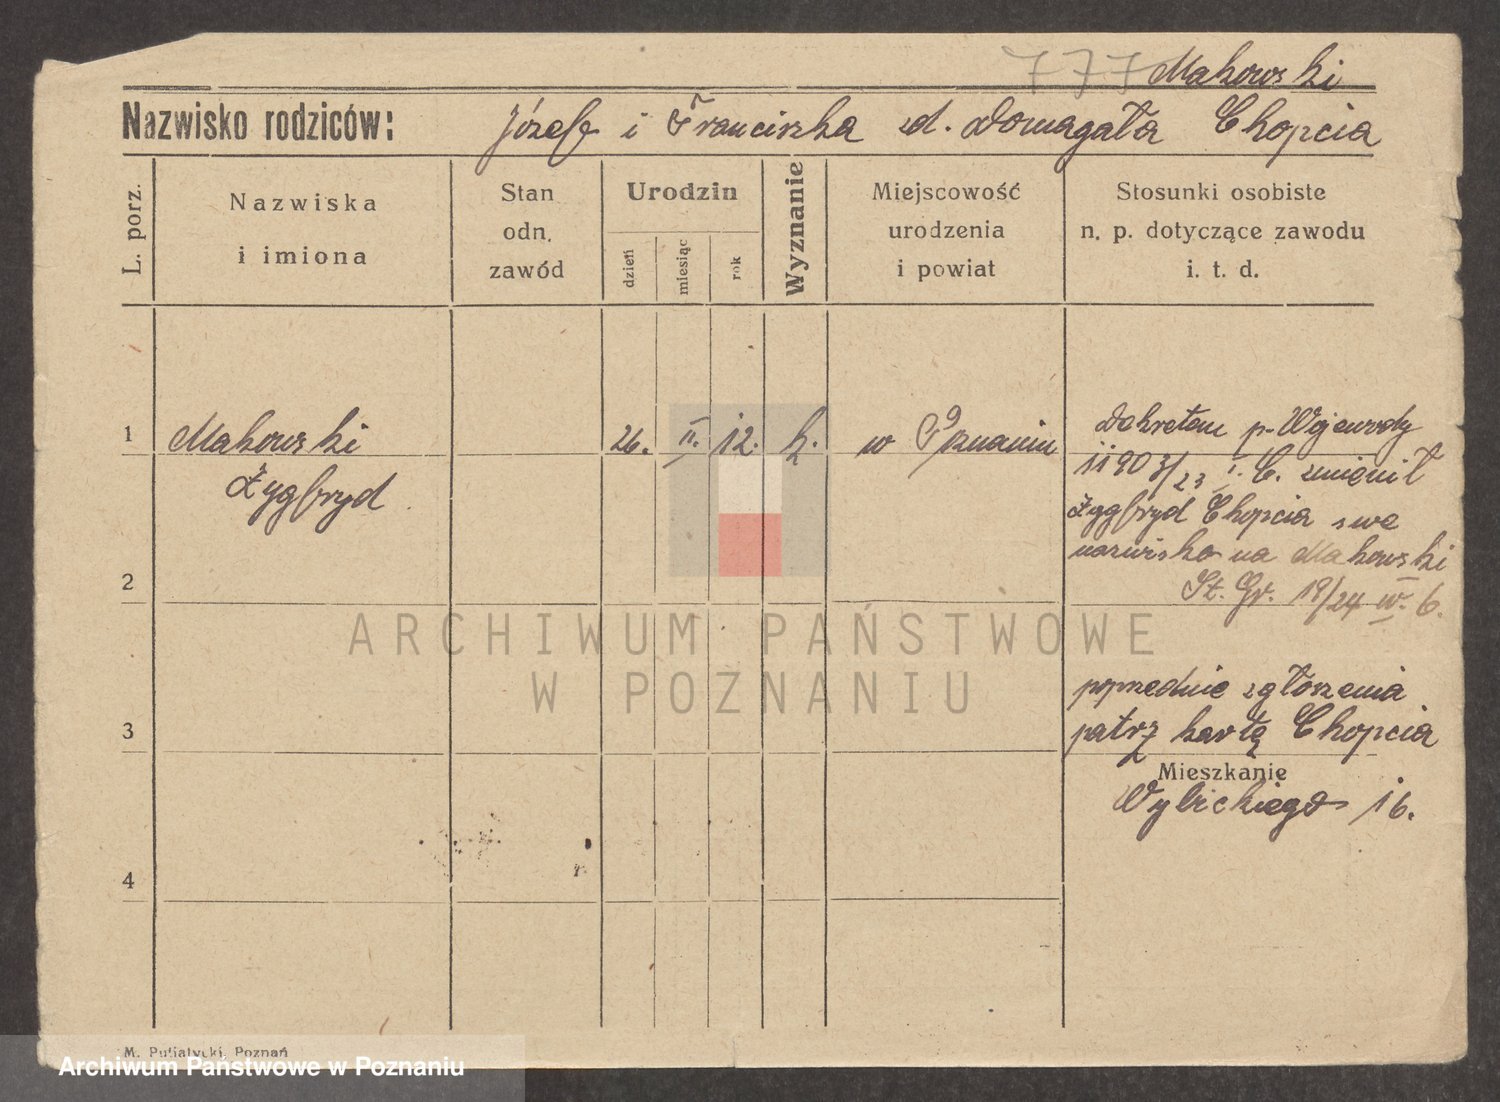 777 Makowski
Nazwisko rodziców: Józef i Franciszka zd. Domagała Chopcia
L. porz.
Nazwiska
i imiona
Stan
odn.
zawód
Urodzin
dzień
miesiąc
rok
Wyznanie
Miejscowość
urodzenia
i powiat
Stosunki osobiste
n. p. dotyczące zawodu
i. t. d.
1 Makowski 26. II. 12. k. w Poznaniu
Zygfryd
Dekretem p. Wojewody
11903/23 I. C. zmienił
Zygfryd Chopcia swe
nazwisko na Makowski
St. Gr. 19/24 IV. 6.
2
poprzednie zgłoszenia
patrz kartę Chopcia
3
Mieszkanie
Wybickiego 16.
4
ARCHIWUM PAŃSTWOWE
W POZNANIU
M. Putiatycki, Poznań
Archiwum Państwowe w Poznaniu